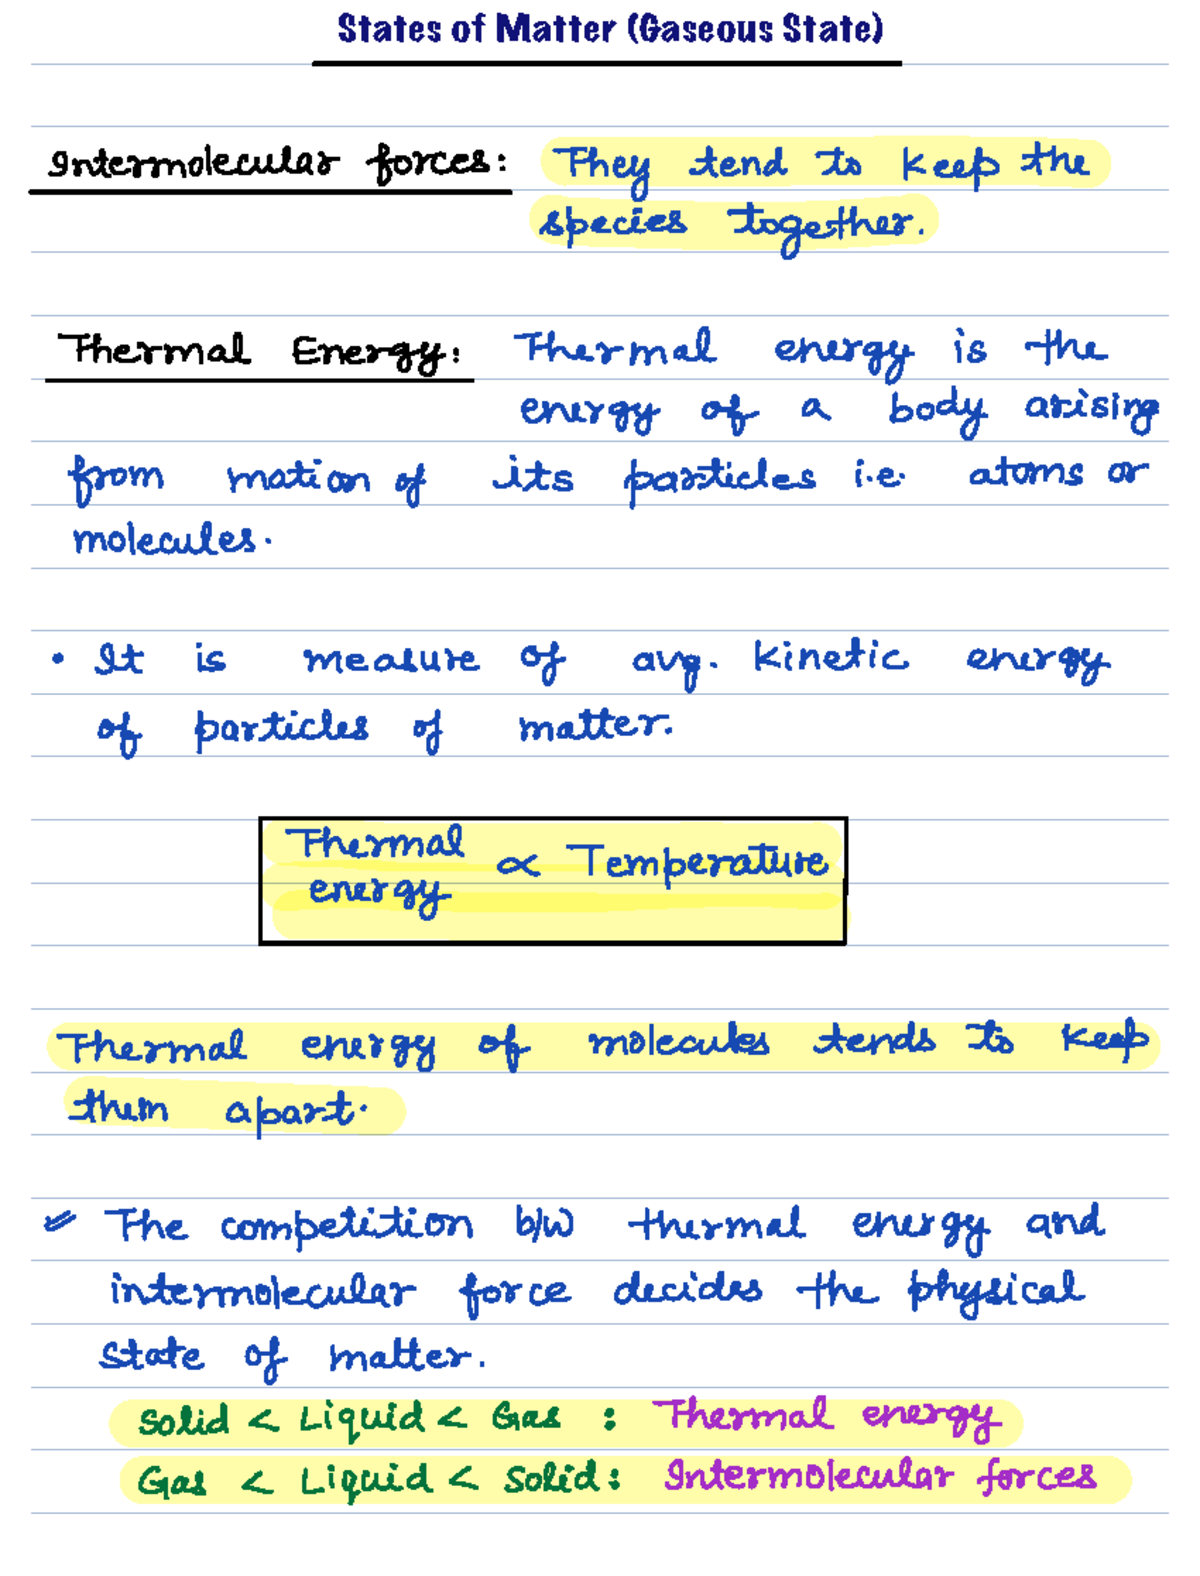 States of Matter (Gaseous State)
Intermolecular forces: They tend to keep the
species together.
Thermal Energy: Thermal energy is the
energy of a body arising
from motion of its particles i.e. atoms or
molecules.
• It is measure of avg. kinetic energy
of particles of matter.
Thermal
energy ∝ Temperature
Thermal energy of molecules tends to keep
them apart.
The competition b/w thermal energy and
intermolecular force decides the physical
state of matter.
Solid < Liquid < Gas : Thermal energy
Gas < Liquid < Solid: Intermolecular forces